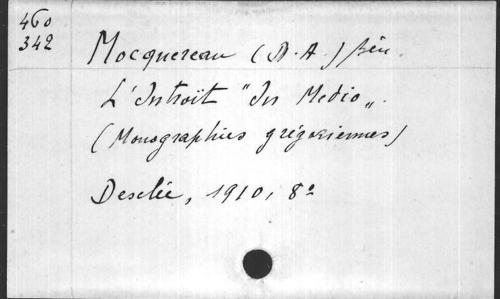 460
342
Mocquereau (D. A.) Bén.
L'Introït "In Medio„.
(Monographies grégoriennes)
Desclée, 1910, 8°